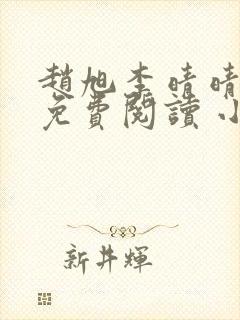 趙旭李晴晴
免費閱讀小
新井輝